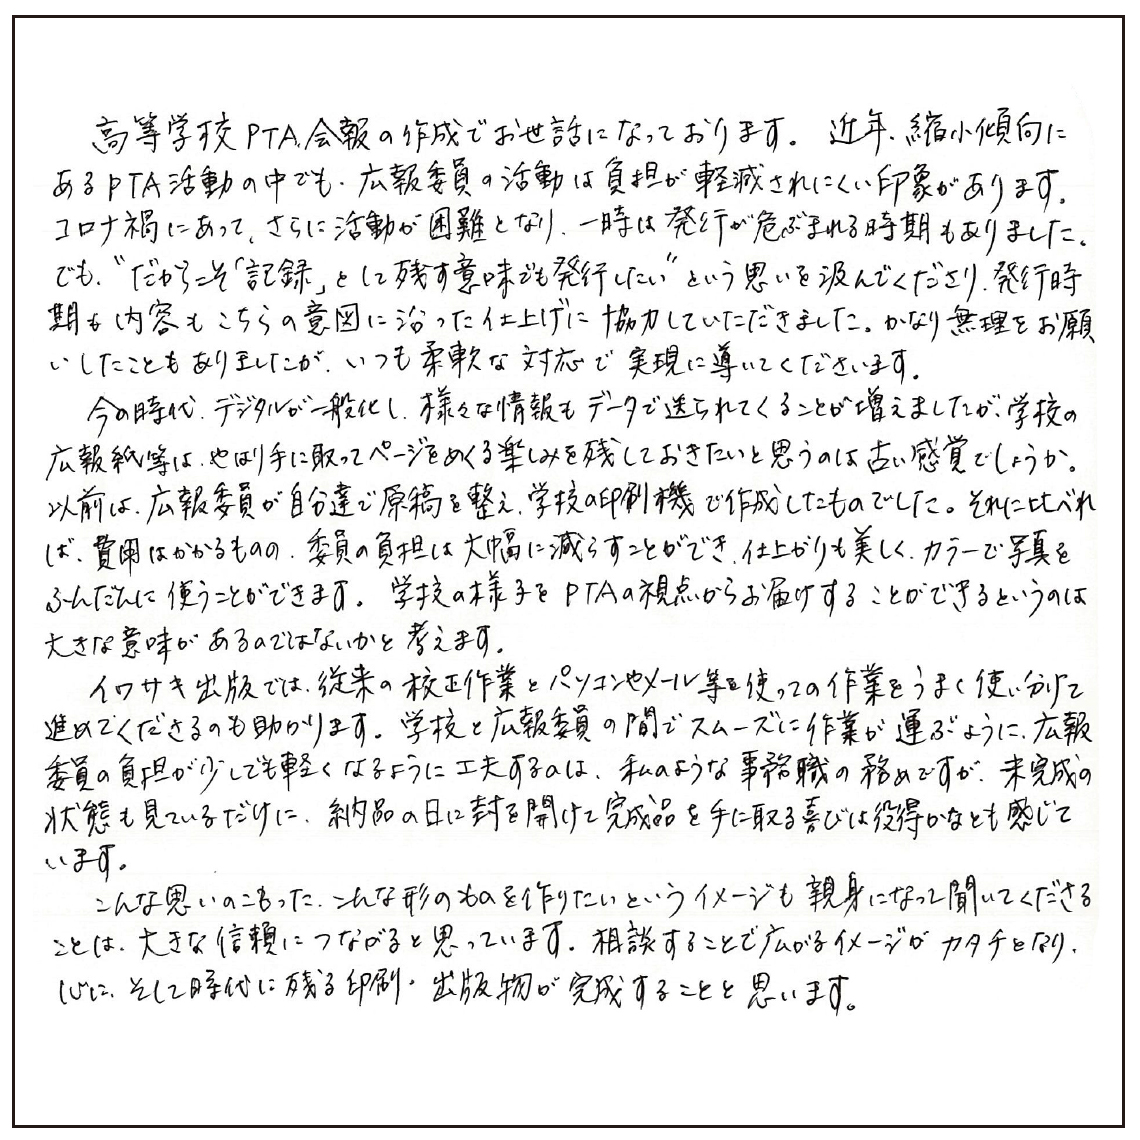 高等学校PTA会報の作成でお世話になっております。近年、縮小傾向に
あるPTA活動の中でも、広報委員の活動は負担が軽減されにくい印象があります。
コロナ禍にあって、さらに活動が困難となり、一時は発行が危ぶまれる時期もありました。
でも、“だからこそ「記録」として残す意味でも発行したい”という思いを汲んでくださり、発行時
期も内容もこちらの意図に沿った仕上げに協力していただきました。かなり無理をお願
いしたこともありましたが、いつも柔軟な対応で実現に導いてくださいます。
今の時代、デジタルが一般化し、様々な情報もデータで送られてくることが増えましたが、学校の
広報紙等は、やはり手に取ってページをめくる楽しみを残しておきたいと思うのは古い感覚でしょうか。
以前は、広報委員が自分達で原稿を整え、学校の印刷機で作成したものでした。それに比べれ
ば、費用はかかるものの、委員の負担は大幅に減らすことができ、仕上がりも美しく、カラーで写真を
ふんだんに使うことができます。学校の様子をPTAの視点からお届けすることができるというのは
大きな意味があるのではないかと考えます。
イワサキ出版では、従来の校正作業とパソコンやメール等を使っての作業をうまく使い分けて
進めてくださるのも助かります。学校と広報委員の間でスムーズに作業が運ぶように、広報
委員の負担が少しでも軽くなるように工夫するのは、私のような事務職の務めですが、未完成の
状態も見ているだけに、納品の日に封を開けて完成品を手に取る喜びは役得かなとも感じて
います。
こんな思いのこもった、こんな形のものを作りたいというイメージも親身になって聞いてくださる
ことは、大きな信頼につながると思っています。相談することで広がるイメージがカタチとなり、
心に、そして時代に残る印刷・出版物が完成することと思います。